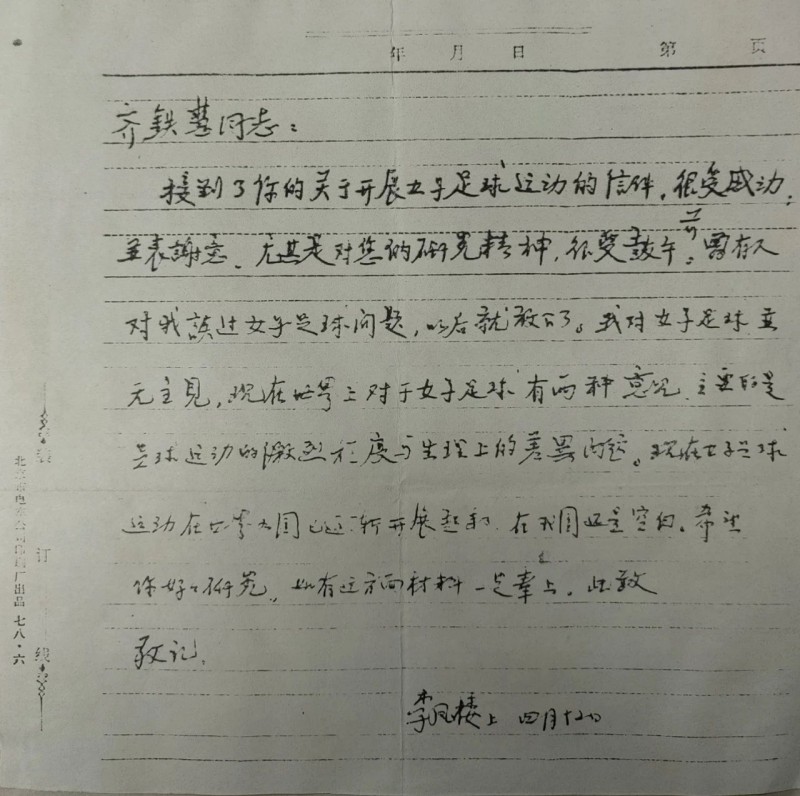 年 月 日 第 页
齐铁 同志：
接到了你的关于开展女子足球运动的信件，很受感动，
並表謝意、尤其是对您的研究精神，很受鼓午。曾有人
对我談过女子足球问题，以后就放下了。我对女子足球並
无主見，现在世界上对于女子足球有两种意见、主要的是
足球运动的激烈程度与生理上的差異问题。现在女子足球
运动在世界各国已逐渐开展起来，在我国还是空白。希望
你好好研究，如有这方面材料一定奉上。此致
敬礼，
李凤楼上 四月十 日
北京市电车公司印刷厂出品 七八·六
装 订 线